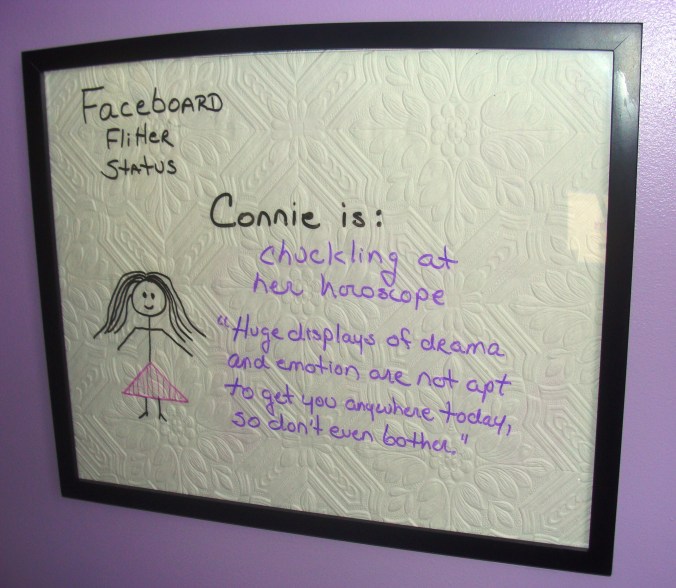 FaceBOARD
Flitter
Status
Connie is:
chuckling at
her horoscope
"Huge displays of drama
and emotion are not apt
to get you anywhere today,
so don't even bother."